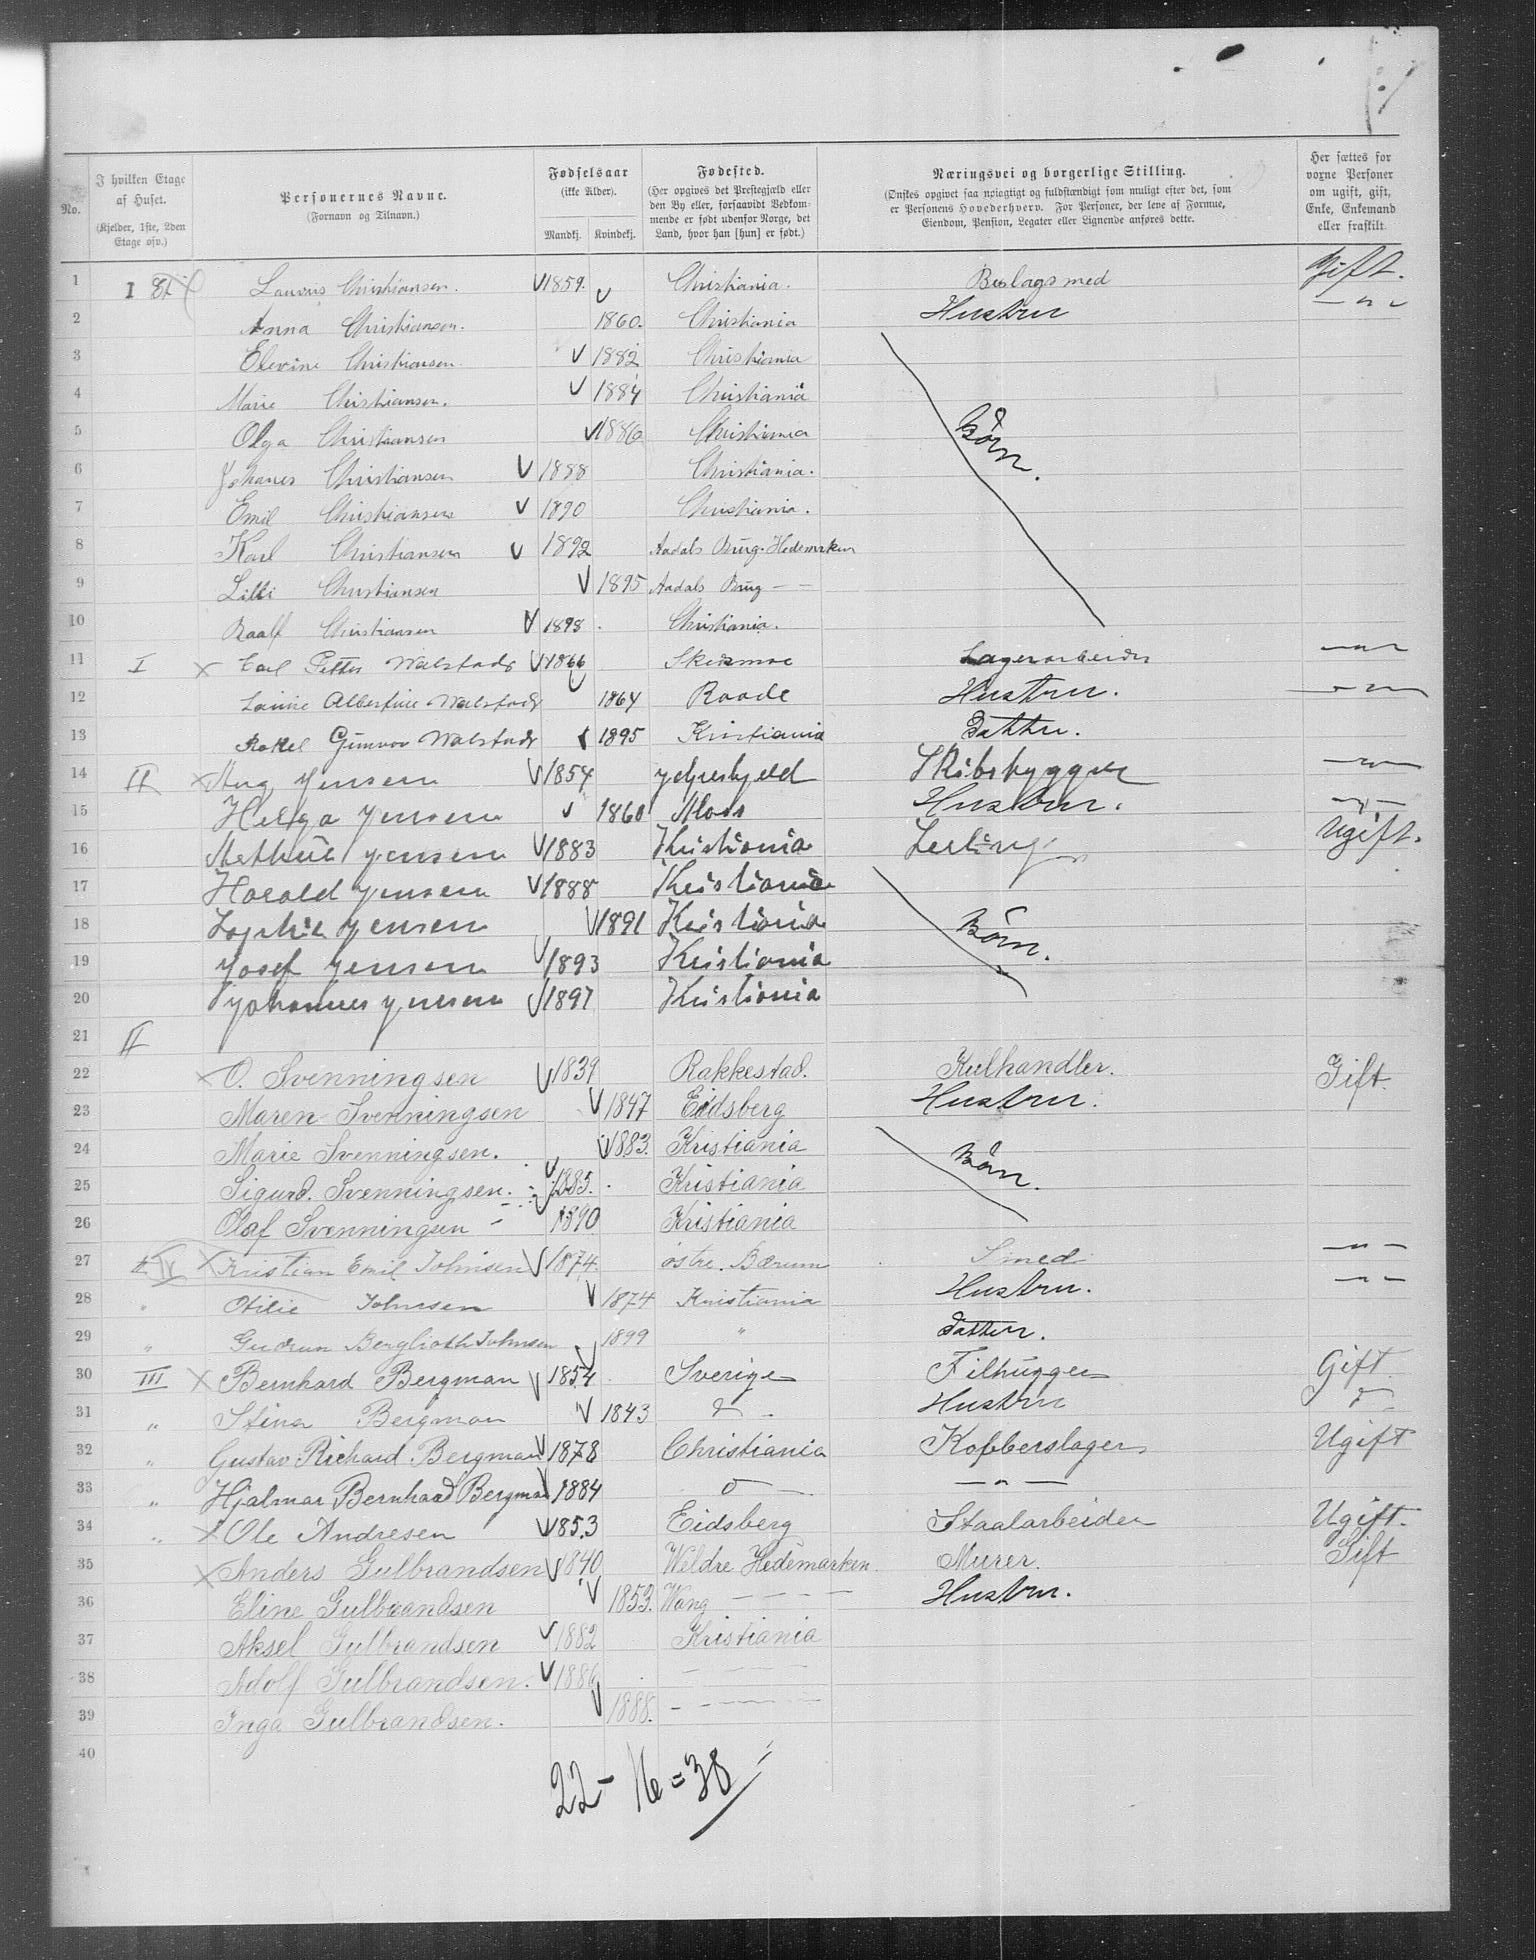 No.
I hvilken Etage af Huset.
(Kjelder, 1ste, 2den Etage osv.)
Personernes Navne.
(Fornavn og Tilnavn.)
Fødselsaar
(ikke Alder).
Mandkj. Kvindekj.
Fødested.
(Her opgives det Prestegjæld eller den By eller, forsaavidt Vedkommende er født udenfor Norge, det Land, hvor han [hun] er født.)
Næringsvei og borgerlige Stilling.
(Ønskes opgivet saa nøiagtigt og fuldstændigt som muligt efter det, som er Personens Hovederhverv. For Personer, der leve af Formue, Eiendom, Pension, Legater eller Lignende anføres dette.
Her sættes for voxne Personer om ugift, gift, Enke, Enkemand eller fraskilt.
1 I Et Laurits Christiansen. 1859. Christiania. Beslagsmed Gift.
2 Anna Christiansen. 1860. Christiania Hustru — " —
3 Elevine Christiansen. 1882 Christiania
4 Marie Christiansen. 1884 Christiania
5 Olga Christiansen 1886 Christiania Börn.
6 Johanes Christiansen 1888 Christiania.
7 Emil Christiansen 1890 Christiania.
8 Karl Christiansen 1892 Aadals Brug. Hedemarken
9 Lilli Christiansen 1895 Aadals Brug — —
10 Raalf Christiansen 1898 Christiania.
11 I Carl Petter Walstads 1866 Skedsmoe Lagerarbeider — " —
12 Albertine Walstads 1864 Raade Hustru. — " —
13 Rakel Gunvor Walstads 1895 Kristiania Datter.
14 II Aug Jensen 1854 Skibsbygger — " —
15 Helga Jensen 1860 Moss Hustru. — " —
16 Jensen 1883 Kristiania Lerling Ugift.
17 Harald Jensen 1888 Kristiania
18 Sophie Jensen 1891 Kristiania Börn.
19 Josef Jensen 1893 Kristiania
20 Johannes Jensen 1897 Kristiania
21 II
22 O. Svenningsen 1839 Rakkestad. Kulhandler. Gift.
23 Maren Svenningsen 1847 Eidsberg Hustru.
24 Marie Svenningsen. 1883. Kristiania Börn.
25 Sigurd. Svenningsen. 1885. Kristiania
26 Olaf Svenningsen 1890 Kristiania
27 IV Kristian Emil Johnsen 1874. östre. Bærum Smed — " —
28 " Otilie Johnsen 1874 Kristiania Hustru. — " —
29 " Gudrun Berglioth Johnsen 1899 " Datter.
30 III Bernhard Bergman 1854 Sverige Filhugger Gift
31 " Stina Bergman 1843 Hustru
32 " Gustav Richard Bergman 1878 Christiania Kobberslager Ugift
33 " Hjalmar Bernhard Bergman 1884 — " —
34 " Ole Andresen 1853 Eidsberg Staalarbeider Ugift.
35 Anders Gulbrandsen 1840 Veldre Hedemarken. Murer. Gift
36 Eline Gulbrandsen 1853. Wang — — — Hustru.
37 Aksel Gulbrandsen 1882 Kristiania
38 Adolf Gulbrandsen. 1886 — — — —
39 Inga Gulbrandsen. 1888. — — — —
40
22 - 16 = 38